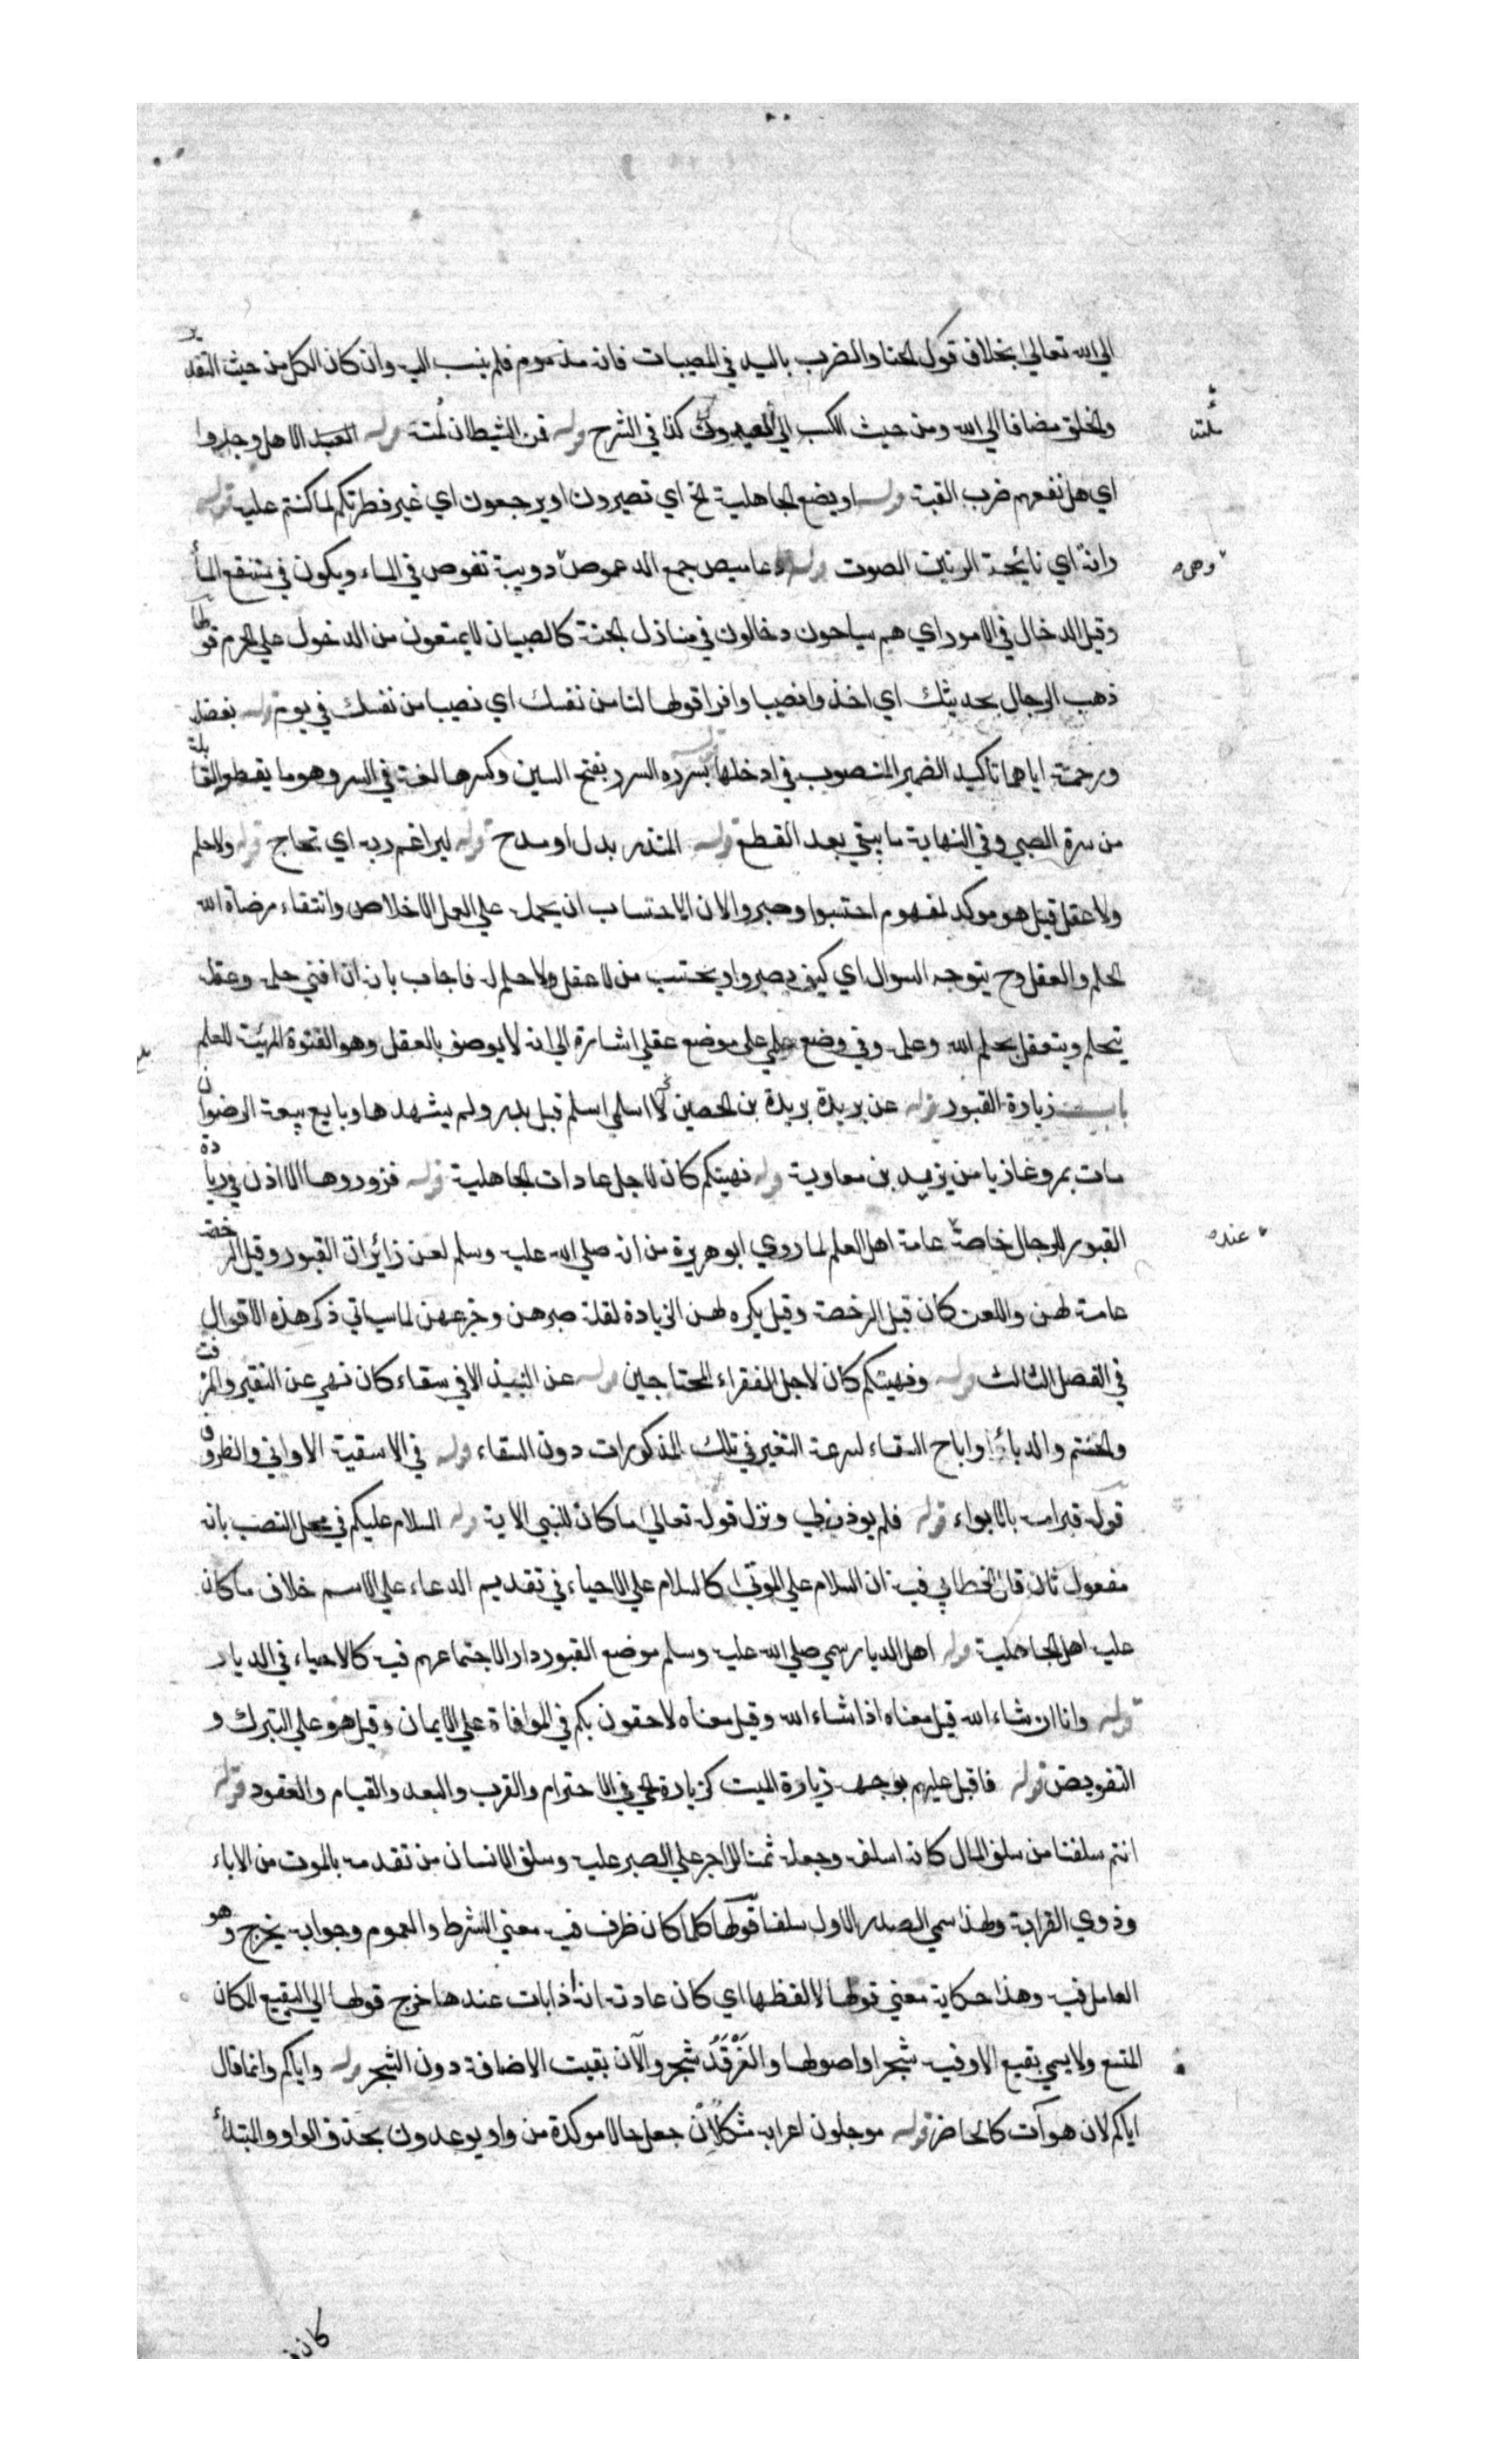 الي الله تعالي بخلاف قول الخنا والضرب باليد في المصيبات فانه مذموم فلم ينسب اليه وان كان الكل من حيث التقدير
والخلق مضافا الي الله ومن حيث الكسب الي العبد كذا في الشرح قوله فمن الشيطان لمته قوله العبد الا هل وجدوا
اي هل نفعهم ضرب القبة قوله او بضع الجاهلية الخ اي تصيرون او يرجعون اي غير فطرتكم لما كنتم عليه قوله
رانة اي نائحة الرنين الصوت قوله دعاميص جمع الدعموص دويبة تغوص في الماء ويكون في مستنقع الماء
وقيل الدخال في الامور اي هم سياحون دخالون في منازل الجنة كالصبيان لا يمنعون من الدخول علي الحرم قولها
ذهب الرجال بحديثك اي اخذوا نصيبا وافرا قولها لنا من نفسك اي نصيبا من نفسك في يوم قوله بفضل
ورحمته اياهما تاكيد الضمير المنصوب في ادخلهما قوله بسرره السرر بفتح السين وكسرها لغة في السر وهو ما يقطع القابلة
من سرة الصبي وفي النهاية ما يبقي بعد القطع قوله المتدر بدل او مدح قوله ليراغم ربه اي تحاج قوله ولا حلم
ولا عقل قيل هو موكد لمفهوم احتسبوا وصبروا لان الاحتساب ان يحمله علي العمل الاخلاص وابتغاء مرضاة الله
الحلم والعقل وح يتوجه السوال اي كيف يصبر او يحتسب من لا عقل ولا حلم له فاجاب بانه ان افني حلمه وعقله
يتحلم ويتعقل بحلم الله وعلمه وفي وضع علمي علي موضع عقلي اشارة الي انه لا يوصف بالعقل وهو القوة المهيئة للعلم
باب زيارة القبور قوله عن بريدة بريدة بن الحصين الاسلمي اسلم قبل بدر ولم يشهدها وبايع بيعة الرضوان
مات بمرو غازيا من يزيد بن معاوية قوله نهيتكم كان لاجل عادات الجاهلية قوله فزوروها الاذن في زيادة
القبور للرجال خاصة عامة اهل العلم لما روي ابو هريرة من انه صلي الله عليه وسلم لعن زائرات القبور وقيل الرخصة
عامة لهن واللعن كان قبل الرخصة وقيل يكره لهن الزيادة لقلة صبرهن وجزعهن لما سياتي ذكر هذه الاقوال
في الفصل الثالث قوله ونهيتكم كان لاجل الفقراء المحتاجين قوله عن النبيذ الا في سقاء كان نهي عن النقير والمزفت
والحنتم والدباء واباح السقاء لسرعة التغير في تلك المذكورات دون السقاء قوله في الاسقية الاواني والظروف
قوله قبر امه بالابواء قوله فلم يوذن لي ونزل قوله تعالي ما كان للنبي الاية قوله السلام عليكم في محل النصب بانه
مفعول ثان قال الخطابي فيه ان السلام علي الموتي كالسلام علي الاحياء في تقديم الدعاء علي الاسم خلاف ما كان
عليه اهل الجاهلية قوله اهل الديار سمي صلي الله عليه وسلم موضع القبور دار الاجتماعهم فيه كالاحياء في الديار
قوله وانا ان شاء الله قيل معناه اذا شاء الله وقيل معناه لاحقون بكم في الموافاة علي الايمان وقيل هو علي التبرك و
التفويض قوله فاقبل عليهم بوجهه زيارة الميت كزيارة الحي في الاحترام والقرب والبعد والقيام والعقود قوله
انتم سلفنا من سلف المال كانه اسلفه وجعله ثمنا للاجر علي الصبر عليه وسلف الانسان من تقدمه بالموت من الاباء
وذوي القرابة ولهذا سمي الصدر الاول سلفا قولها كلما كان ظرف فيه معني الشرط والعموم وجوابه يخرج وهو
العامل فيه وهذا حكاية معني قولها لا لفظها اي كان عادته انه اذا بات عندها خرج قولها الي البقيع المكان
المتسع ولا يسمي بقيع الا وفيه شجر او اصولها والغرقد شجر والآن بقيت الاضافة دون الشجر قوله واياكم وانما قال
اياكم لان هو آت كالحاضر قوله موجلون اعرابه مشكل لان جعل حالا موكدة من واو يوعدون بحذف الواو والمبتدأ
وهي
عنده
كان